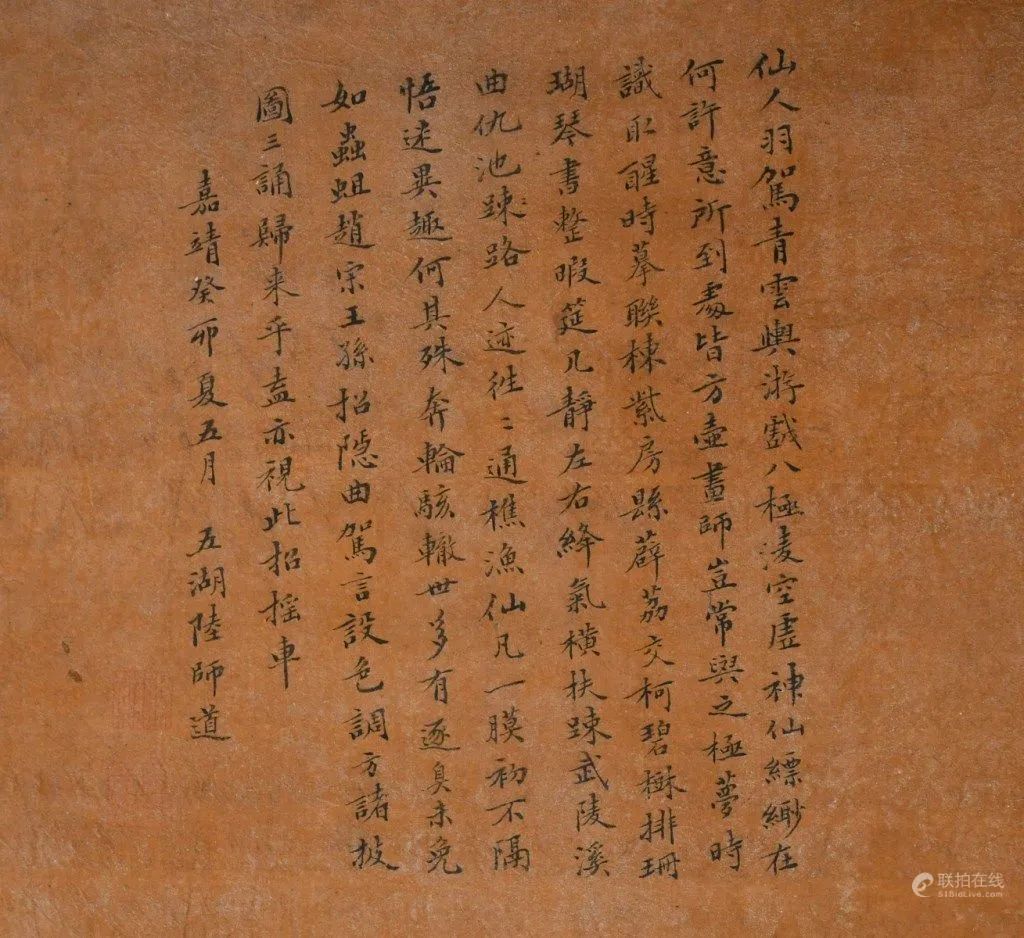 仙人羽駕青雲輿游戲八極淩空虛神仙縹緲在
何許意所到處皆方壺畫師豈常與之極夢時
識取醒時摹聯棟紫房縣薜荔交柯碧樹排珊
瑚琴書整暇筵几靜左右絳氣橫扶踈武陵溪
曲仇池踈路人迹往〻通樵漁仙凡一膜初不隔
悟迷異趣何其殊奔輪駭轍世多有逐臭未免
如蟲蛆趙宋王孫招隱曲駕言設色調方諸披
圖三誦歸來乎盍亦視此招搖車
嘉靖癸卯夏五月 五湖陸師道
联拍在线
51BidLive.com